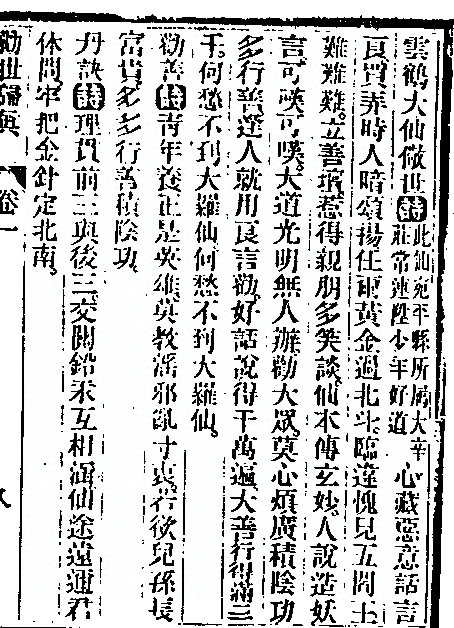 雲鶴大仙儆世詩此仙宛平縣所屬大辛莊常連陞少年好道心藏惡意話言
良買弄時人暗頌揚任爾黃金過北斗臨逢愧見五閻王
難難難立善壇惹得親朋多笑談仙本傳玄妙人說造妖
言可嘆可嘆大道光明無人辦勸大眾莫心煩廣積陰功
多行善逢人就用良言勸好話說得千萬遍大善行得滿三
千何愁不到大羅仙何愁不到大羅仙
勸善詩青年養正是英雄莫教滛邪亂寸衷若欲兒孫長
富貴多多行善積陰功
丹訣詩理貫前三與後三交關鉛汞互相涵仙途遠邇君
休問牢把金針定北南
勸世歸真 卷一 八